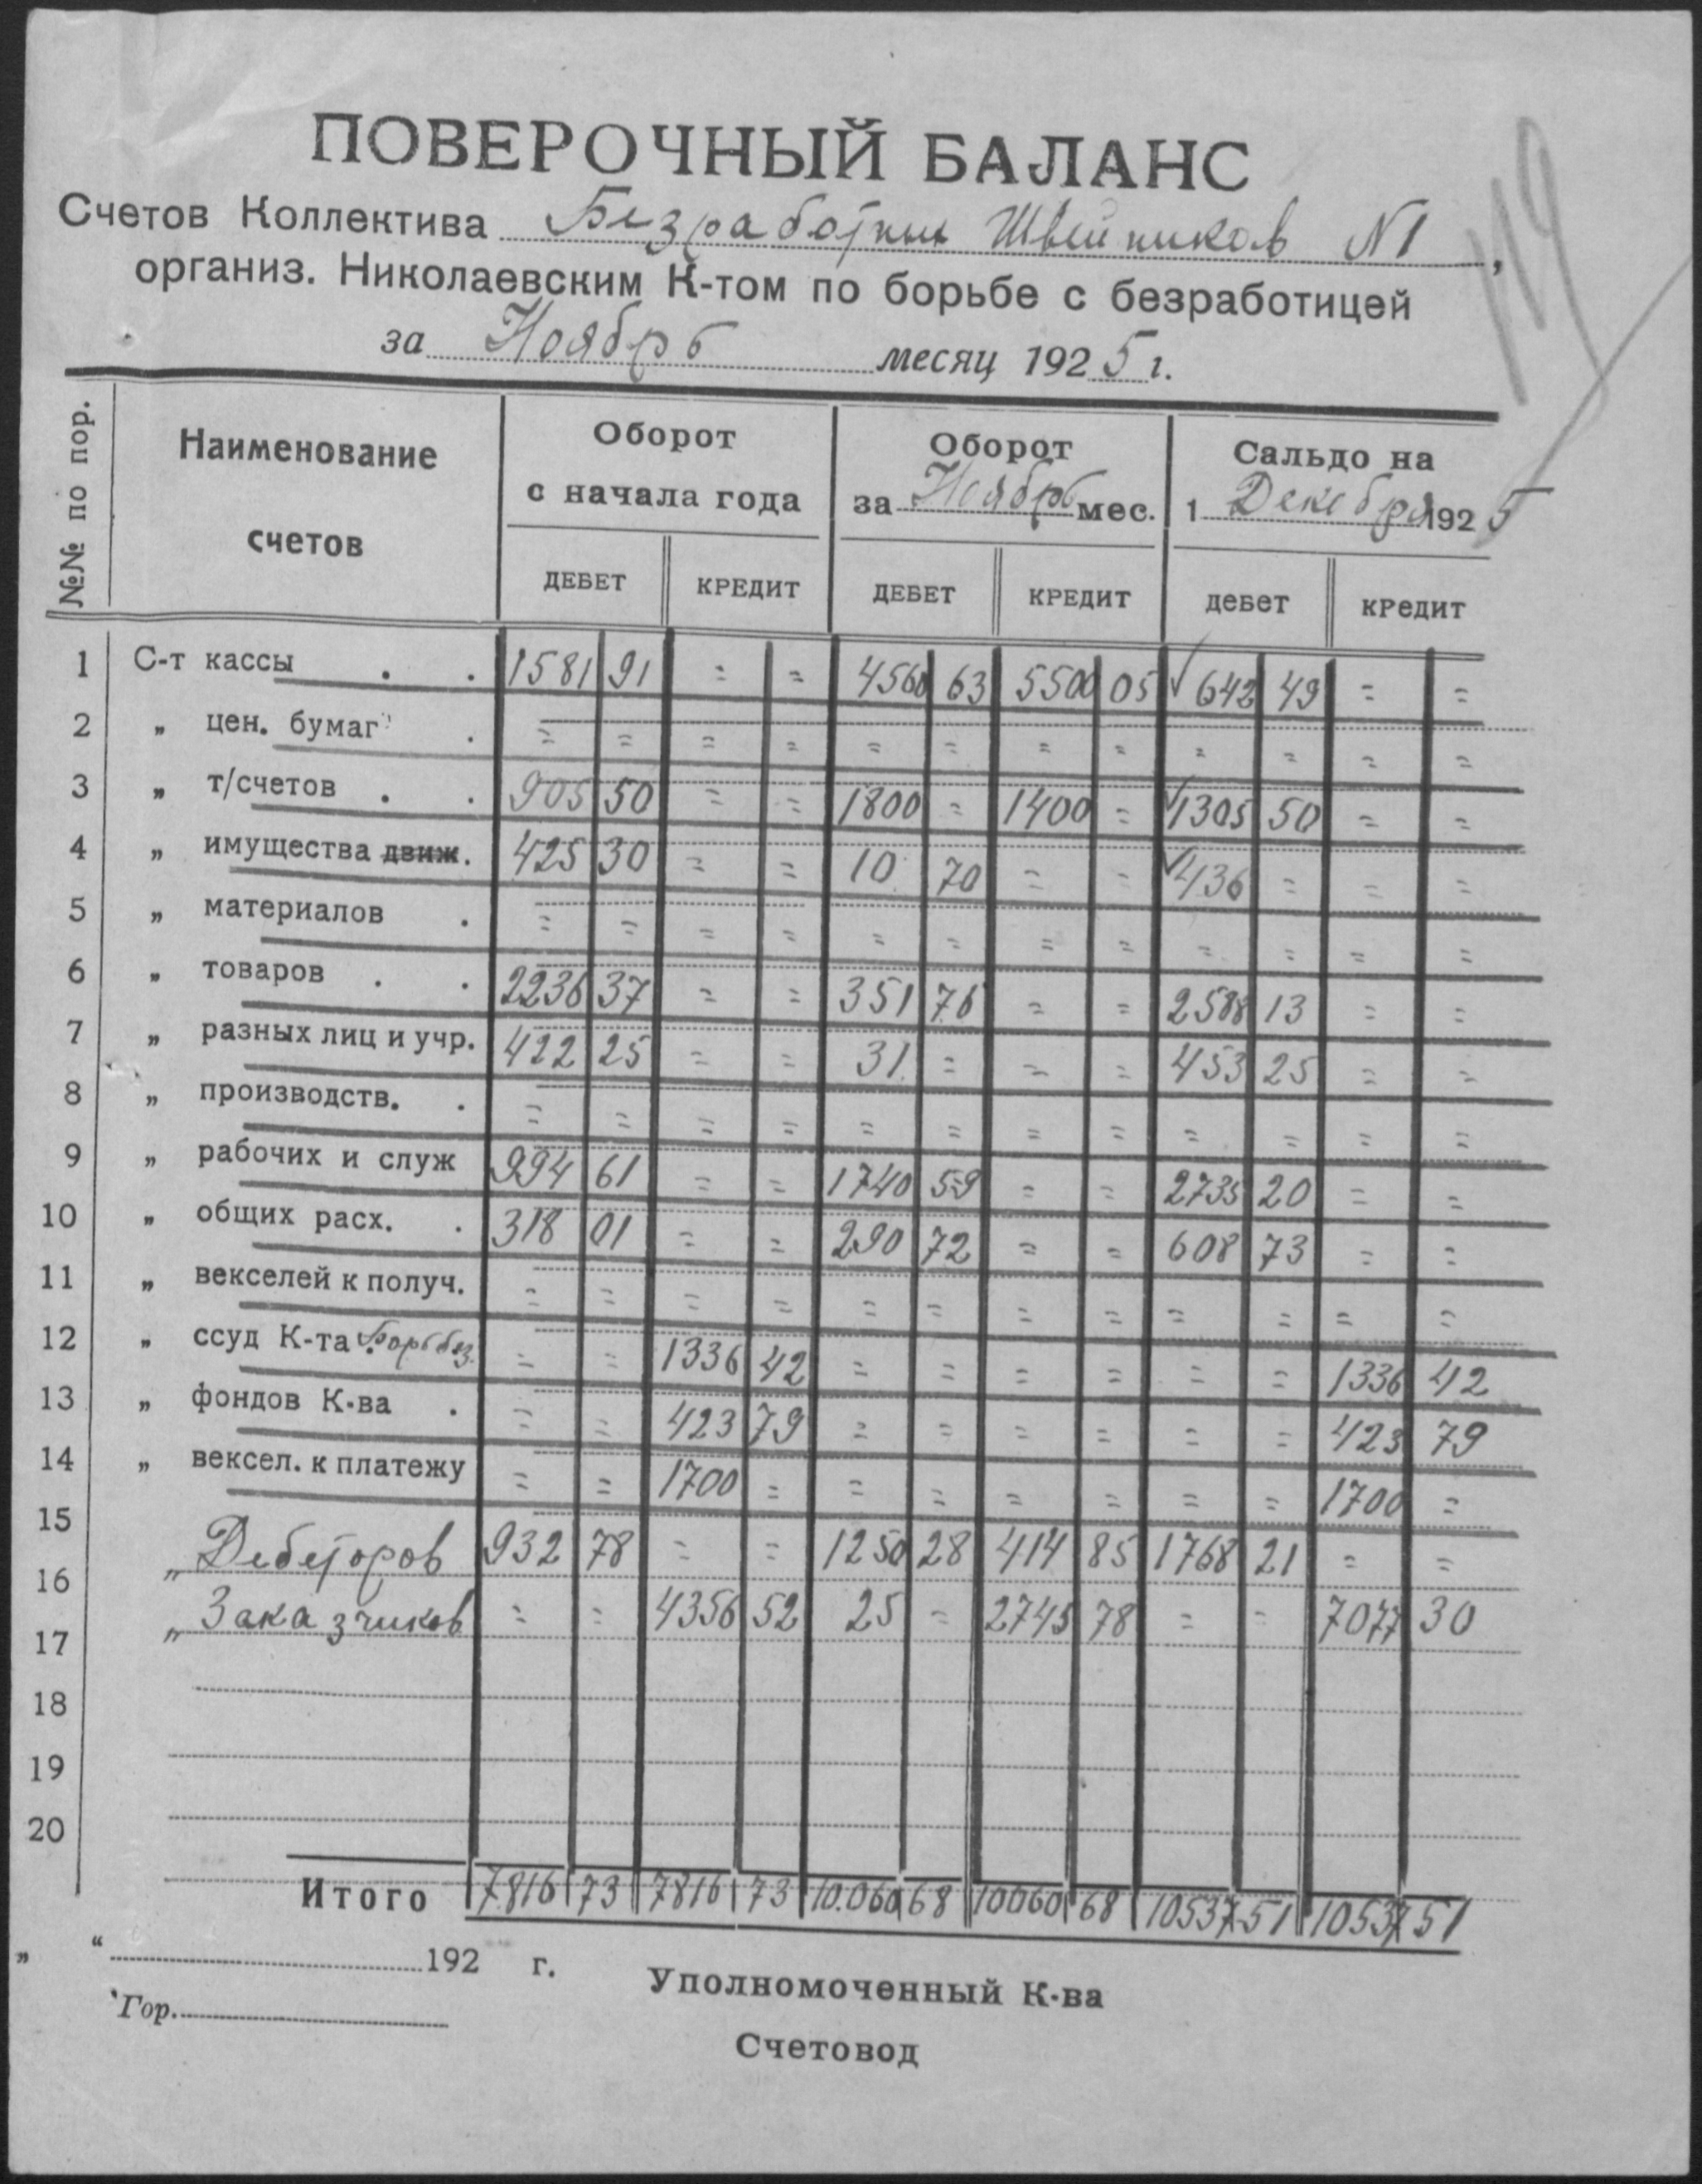 119
ПОВЕРОЧНЫЙ БАЛАНС
Счетов Коллектива Безработных Швейников №1,
организ. Николаевским К-том по борьбе с безработицей
за Ноябрь месяц 1925 г.
№№ по пор. Наименование счетов Оборот с начала года Оборот за Ноябрь мес. Сальдо на 1 Декабря 1925
ДЕБЕТ КРЕДИТ ДЕБЕТ КРЕДИТ дебет кредит
1 С-т кассы . . 1581 91 = = 4560 63 5500 05 √ 642 49 = =
2 „ цен. бумаг . = = = = = = = = = = = =
3 „ т/счетов . . 905 50 = = 1800 = 1400 = √ 1305 50 = =
4 „ имущества движ. 425 30 = = 10 70 = = √ 436 = = =
5 „ материалов . = = = = = = = = = = = =
6 „ товаров . . 2236 37 = = 351 76 = = 2588 13 = =
7 „ разных лиц и учр. 422 25 = = 31 = = = 453 25 = =
8 „ производств. . = = = = = = = = = = = =
9 „ рабочих и служ 994 61 = = 1740 59 = = 2735 20 = =
10 „ общих расх. . 318 01 = = 290 72 = = 608 73 = =
11 „ векселей к получ. = = = = = = = = = = = =
12 „ ссуд К-та Борьбез. = = 1336 42 = = = = = = 1336 42
13 „ фондов К-ва . = = 423 79 = = = = = = 423 79
14 „ вексел. к платежу = = 1700 = = = = = = = 1700 =
15 „ Дебеторов 932 78 = = 1250 28 414 85 1768 21 = =
16 „ Заказчиков = = 4356 52 25 = 2745 78 = = 7077 30
17
18
19
20
Итого 7816 73 7816 73 10.060 68 10060 68 10537 51 10537 51
„ “ 192 г. Уполномоченный К-ва
Гор.
Счетовод